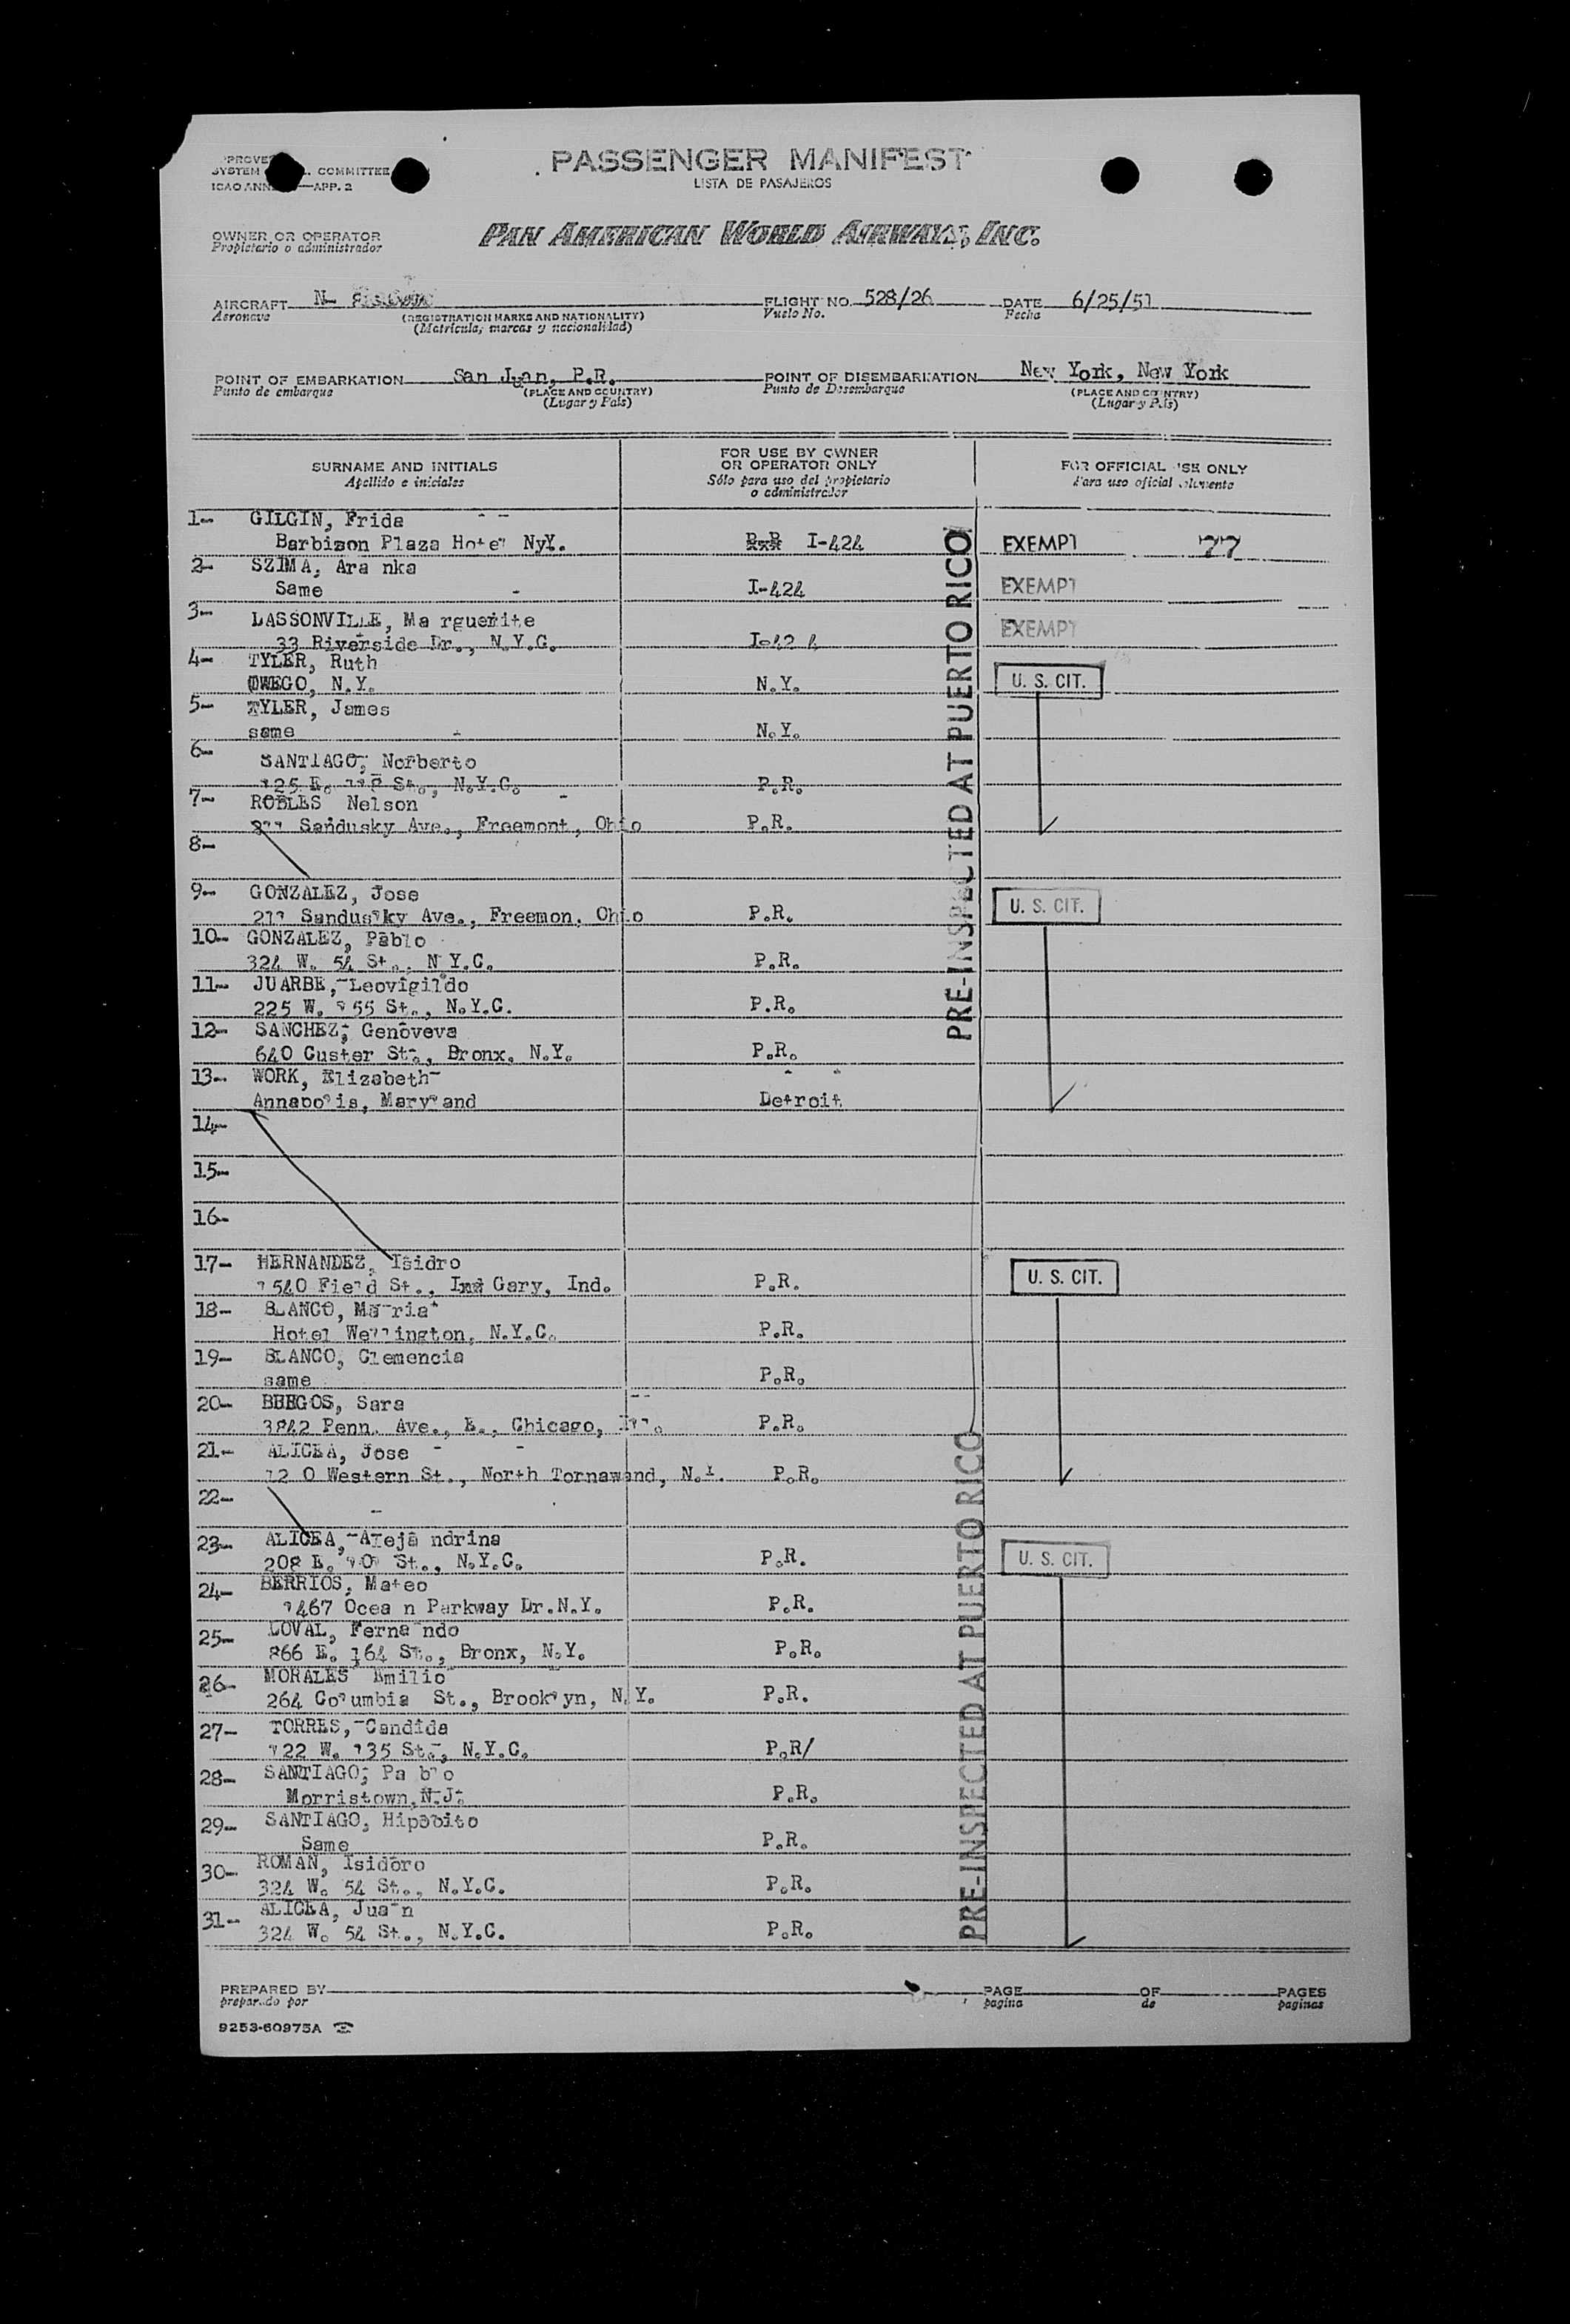 SYSTEM COMMITTEE
—APP. 2
PASSENGER MANIFEST
LISTA DE PASAJEROS
OWNER OR OPERATOR
Propietario o administrador
PAN AMERICAN WORLD AIRWAYS, INC.
AIRCRAFT N-
Aeronave
(REGISTRATION MARKS AND NATIONALITY)
(Matrícula, marcas y nacionalidad)
FLIGHT NO. 528/26
Vuelo No.
DATE 6/25/51
Fecha
POINT OF EMBARKATION San Juan, P.R.
Punto de embarque
(PLACE AND COUNTRY)
(Lugar y País)
POINT OF DISEMBARKATION New York, New York
Punto de Desembarque
(PLACE AND COUNTRY)
(Lugar y País)
SURNAME AND INITIALS
Apellido e iniciales
FOR USE BY OWNER
OR OPERATOR ONLY
Sólo para uso del propietario
o administrador
FOR OFFICIAL USE ONLY
Para uso oficial solamente
1- GILGIN, Frida
Barbizon Plaza Hotel NyY. I-424 EXEMPT 77
2- SZIMA, Ara nka
Same I-424 EXEMPT
3- LASSONVILLE, Ma rguerite
33 Riverside Dr., N.Y.C. I-42 4 EXEMPT
4- TYLER, Ruth
OWEGO, N.Y. N.Y. U. S. CIT.
5- TYLER, James
same N.Y.
6- SANTIAGO, Norberto
125 E. 118 St., N.Y.C. P.R.
7- ROBLES Nelson
Sandusky Ave., Freemont, Ohio P.R.
8-
9- GONZALEZ, Jose
211 Sandusky Ave., Freemon, Ohio P.R. U. S. CIT.
10- GONZALEZ, Pablo
324 W. 54 St., N Y.C. P.R.
11- JUARBE, Leovigildo
225 W. 155 St., N.Y.C. P.R.
12- SANCHEZ, Genoveva
640 Custer St., Bronx, N.Y. P.R.
13- WORK, Elizabeth
Annapolis, Maryland Detroit
14-
15-
16-
17- HERNANDEZ, Isidro
1540 Field St., Gary, Ind. P.R. U. S. CIT.
18- BLANCO, Ma ria
Hotel Wellington, N.Y.C. P.R.
19- BLANCO, Clemencia
same P.R.
20- Sara
3842 Penn. Ave., E., Chicago, Ill. P.R.
21- ALICEA, Jose
12 0 Western St., North Tornawand, N.Y. P.R.
22-
23- ALICEA, Aleja ndrina
208 E. St., N.Y.C. P.R. U. S. CIT.
24- BERRIOS, Mateo
1467 Ocea n Parkway Dr.N.Y. P.R.
25- Ferna ndo
866 E. 164 St., Bronx, N.Y. P.R.
26- MORALES Emilio
264 Columbia St., Brooklyn, N.Y. P.R.
27- TORRES, Candida
122 W. 135 St., N.Y.C. P.R/
28- SANTIAGO, Pa blo
Morristown, N.J. P.R.
29- SANTIAGO, Hipolito
Same P.R.
30- ROMAN, Isidoro
324 W. 54 St., N.Y.C. P.R.
31- ALICEA, Jua n
324 W. 54 St., N.Y.C. P.R.
PRE-INSPECTED AT PUERTO RICO
PRE-INSPECTED AT PUERTO RICO
PREPARED BY
preparado por
PAGE OF PAGES
pagina de paginas
9253-60975A